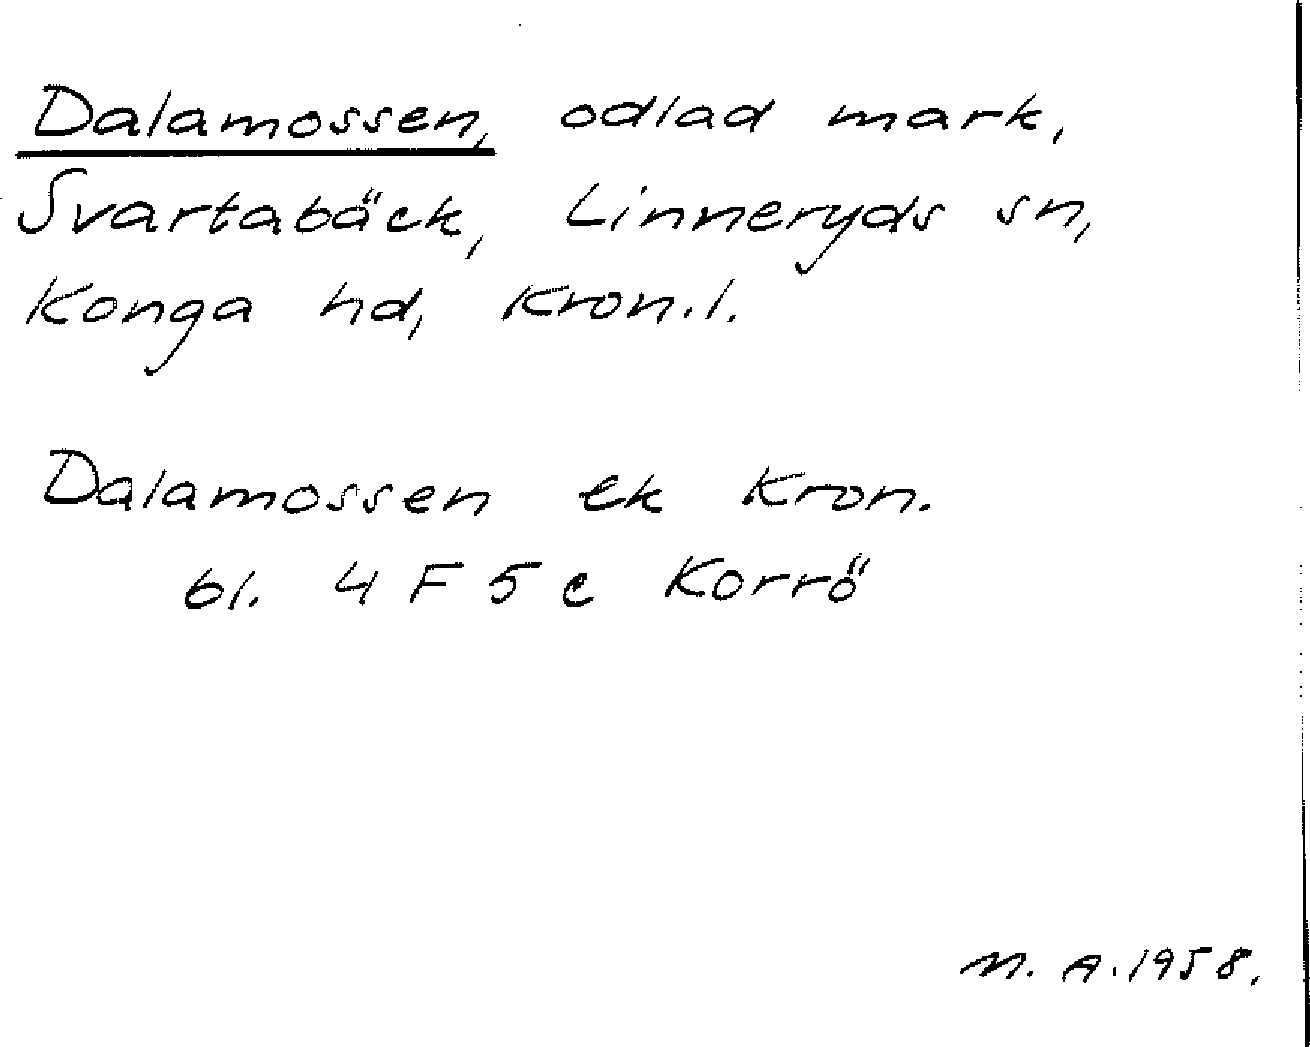 Dalamossen, odlad mark,
Svartabäck, Linneryds sn,
Konga hd, Kron.l.
Dalamossen ek Kron.
bl. 4 F 5 c Korrö
M. A. 1958.